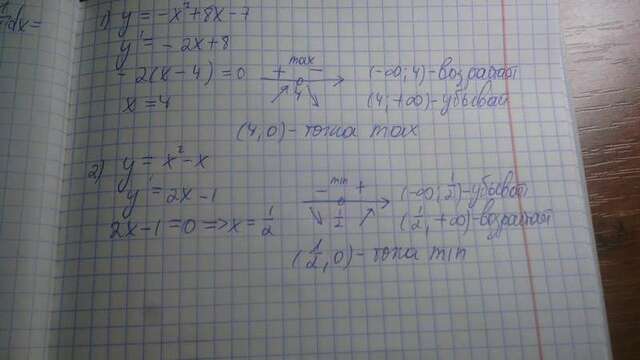 dx=
1) y = -x² + 8x - 7
y' = -2x + 8
-2(x-4) = 0
+ max -
4
(-∞; 4) - возрастает
x = 4
(4; +∞) - убывает
(4, 0) - точка max
2) y = x² - x
y' = 2x - 1
- min +
1/2
(-∞; 1/2) - убывает
2x - 1 = 0 => x = 1/2
(1/2, +∞) - возрастает
(1/2, 0) - точка min